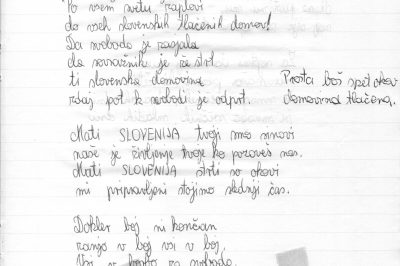 Po vsem svetu zaplovi
do vseh slovenskih tlačenih domov!
Da svoboda je
da sovražnik je že strt
ti slovenska domovina
zdaj pot k svobodi je odprt.
Prosta boš spet okov
domovina tlačena.
Mati SLOVENIJA tvoji smo sinovi
naše je življenje tvoje ko pozoveš nas.
Mati SLOVENIJA strti so okovi
mi pripravljeni stojimo slednji čas.
Dokler boj ni končan
zanjo v boj vsi v boj,
Vsi v za svobodo